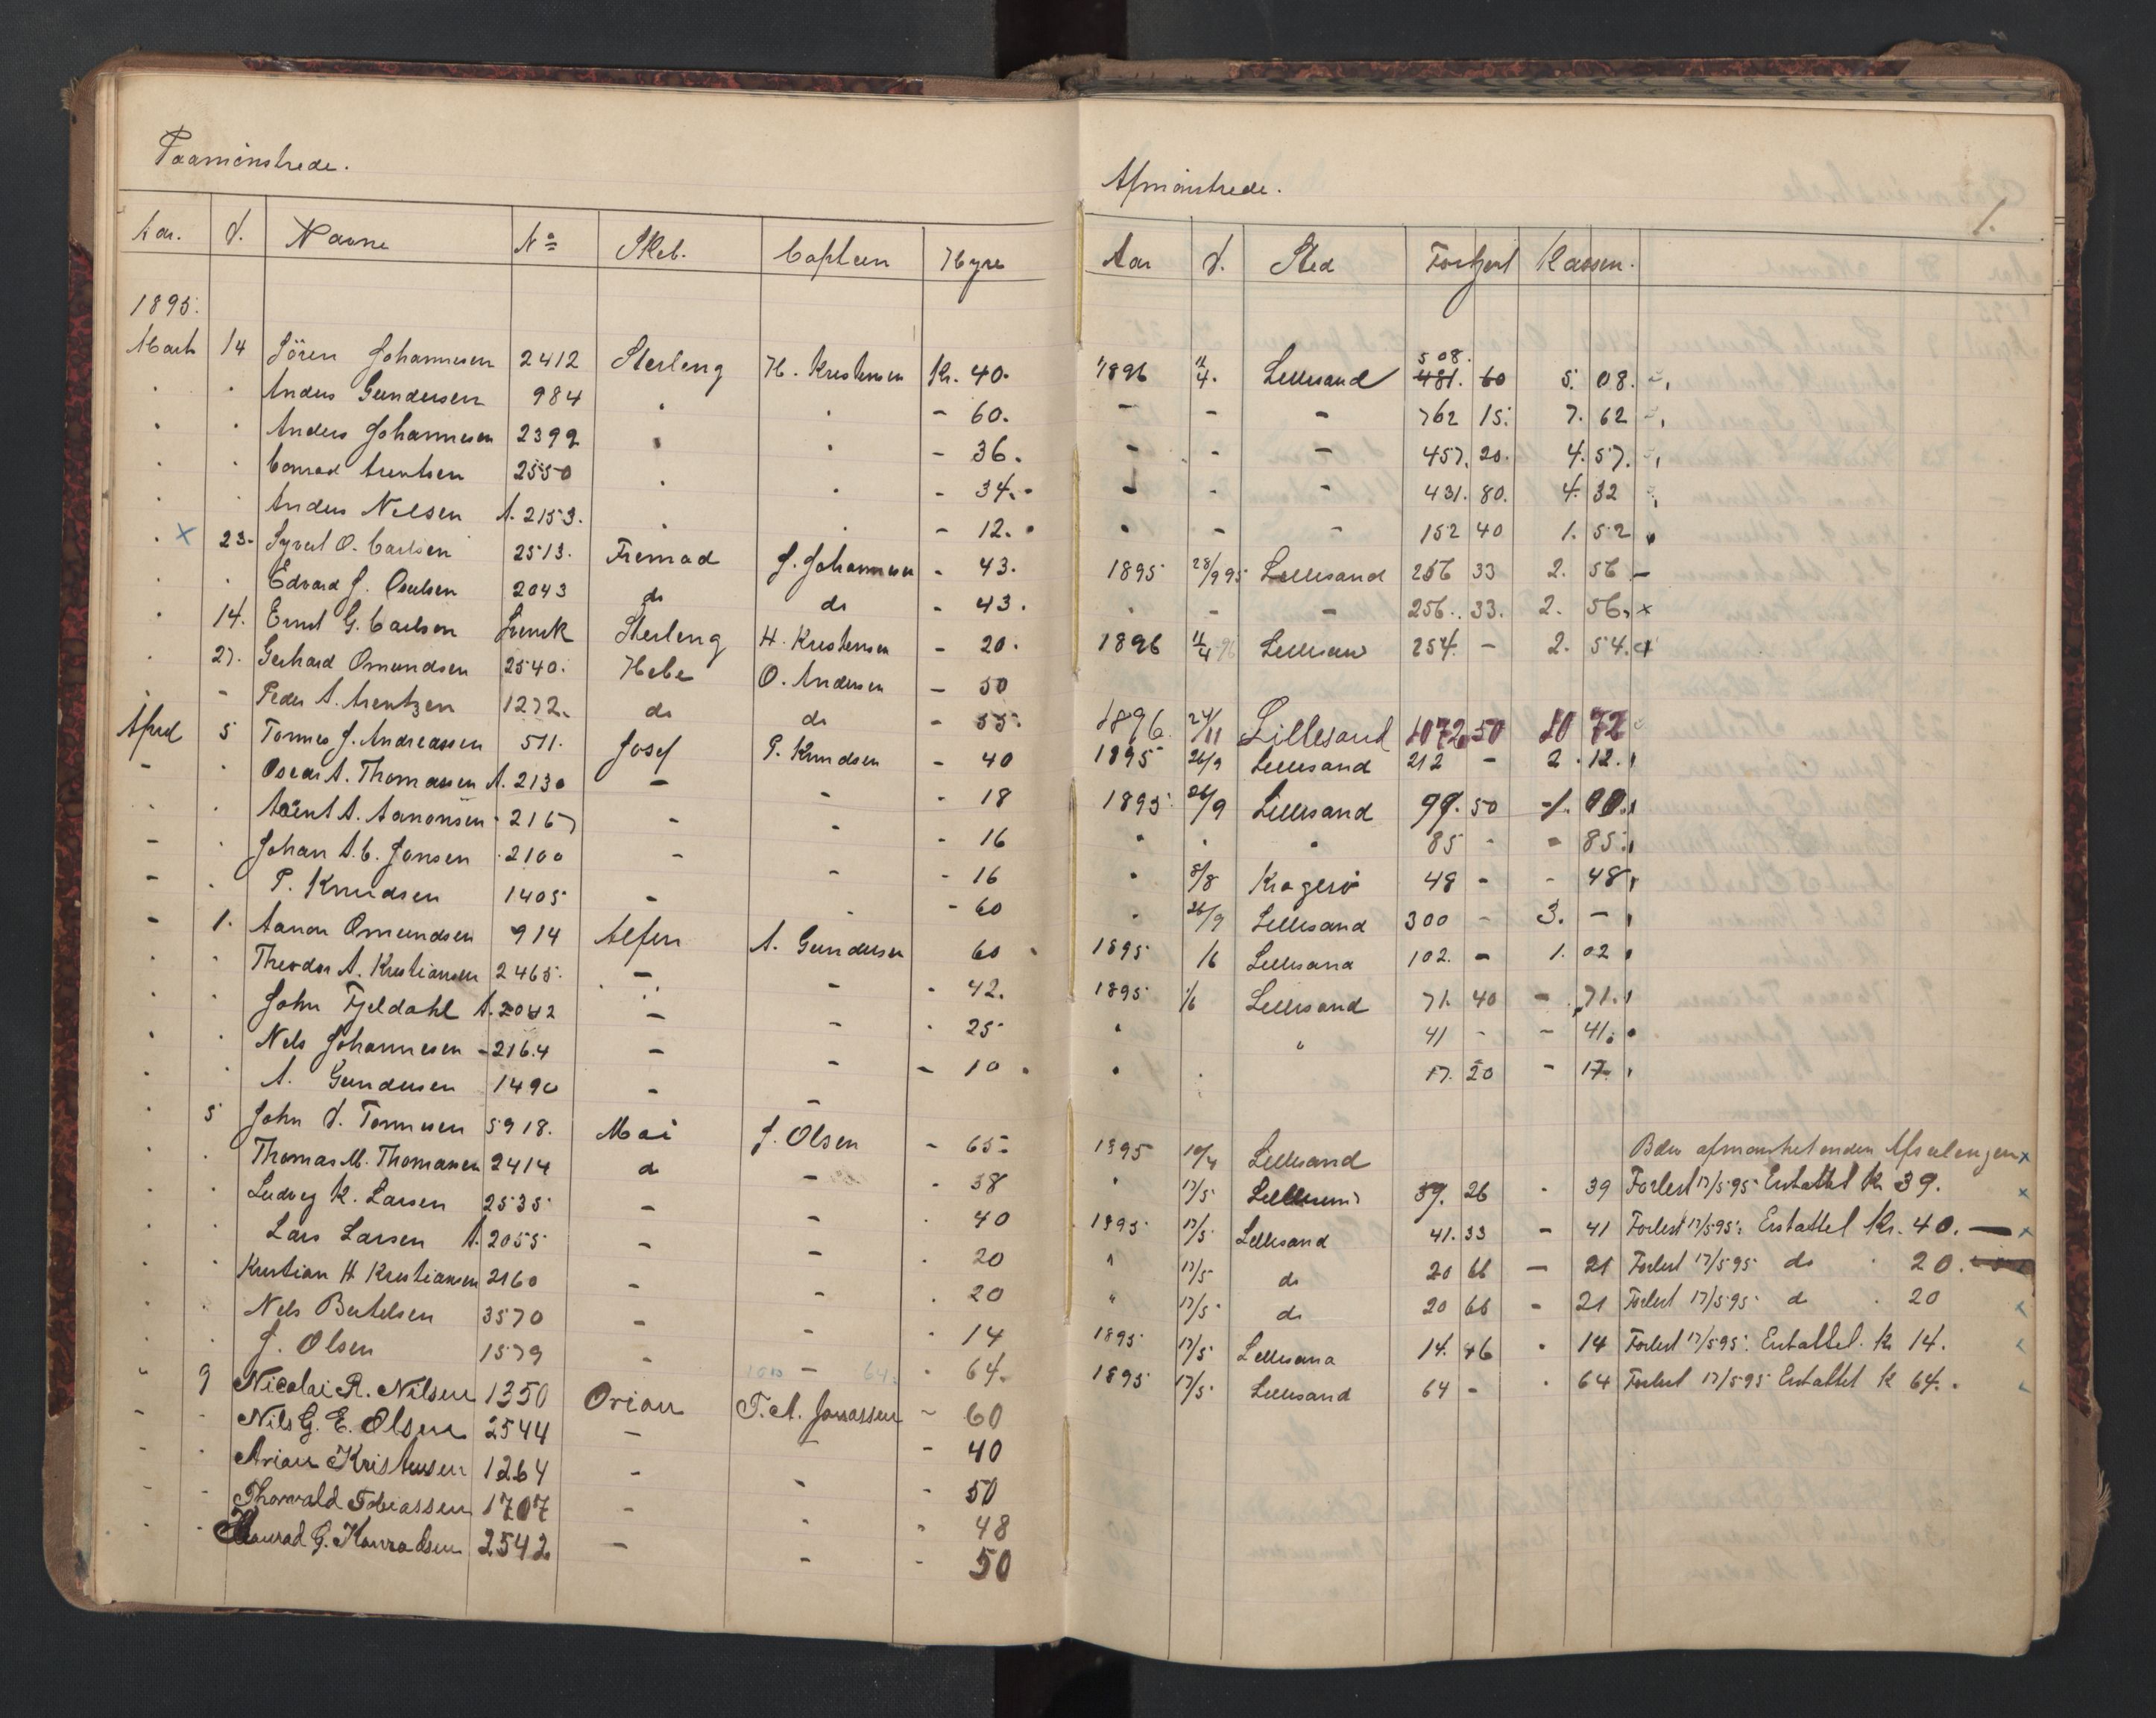 Paamönstrede.
Aar. d. Navne No Skib. Captein Hyre
1895.
Marts 14 Sören Johannesen 2412 Sterling H. Kristensen Kr. 40.
" " Anders Gundersen 984 " " - 60.
" " Anders Johannesen 2392 " " - 36.
" " Conrad Arentsen 2550 " " - 34.
" " Anders Nilsen A. 2153. " " - 12.
" x 23. Syvert O. Carlsen 2513. Fremad J. Johannesen - 43.
" " Edvard J. Osulsen 2043 do do - 43.
" 14. Ernst G. Carlsen Svensk Sterling H. Kristensen - 20.
" 27. Gerhard Omundsen 2540. Hebe O. Andersen - 50
" - Peder A. Arentzen 1272. do do - 55.
April 5 Tønnes J. Andreassen 511. Josef P. Knudsen - 40
- " Oscar A. Thomassen A. 2130 - - " 18
" " Advent A. Aanonsen " 2167 - - - 16
- " Johan A. C. Jonsen " 2100 - - - 16
- " P. Knudsen 1405 - - - 60
- 1. Aanon Omundsen 914 Alfen A. Gundersen 60
" " Theodor A. Kristiansen 2465. - - " 42.
" " John Fjeldahl A. 2042 - - " 25
" " Nils Johannesen - 2164 - - - 10
" " A. Gundersen 1490 - -
" 5 John S. Tønnesen 5918. Mai J. Olsen - 65
" " Thomas M. Thomassen 2414 do - " 38
" " Ludvig K. Larsen 2535 - - " 40
" " Lars Larsen A. 2055 - - " 20
" " Kristian H Kristiansen 2160 - - " 20
" " Nils Bertelsen 3570 - - " 14
" " J. Olsen 1579 - - " 64.
" 9 Nicolai R. Nilsen 1350 Orion T. A. Jonassen - 60
- - Nils G. E. Olsen 2544 - - - 40
- " Arian Kristensen 1264 - - - 50
- - Thorvald Tobiassen 1707 - - " 48
" - Konrad G. Konradsen 2542 - - - 50
Afmönstrede.
1.
Aar d. Sted Fortjent Kassen.
508.
1896 11/4. Lillesand 481. 60 5. 08.
- - - 762 15. 7. 62
- - - 457. 20. 4. 57.
- - - 431. 80. 4. 32
" - - 152 40 1. 52
1895 28/9 95 Lillesand 256 33 2. 56 -
" - - 256. 33. 2. 56. x
1896 11/4 96 Lillesand 254. - 2. 54. x
1896. 24/11 Lillesand 1072 50 10 72
1895 26/9 Lillesand 212 - 2. 12.
1895 26/9 Lillesand 99. 50 1. 00.
" " " 85 - - 85.
" 8/8 Kragerö 48 - - 48
" 26/9 Lillesand 300 - 3. -
1895 1/6 Lillesand 102. - 1. 02
1895 1/6 Lillesand 71. 40 - 71.
" " 41 - - 41.
" " 17. 20 - 17.
1895 10/4 Lillesand Blev afmönstret enden Afseilingen x
" 17/5 Lillesand 39. 26 " 39 Forlist 17/5 95 Erstattet Kr 39. x
1895 17/5 Lillesand 41. 33 - 41 Forlist 17/5 95. Erstattet Kr. 40. - x
" 17/5 do 20 66 - 21 Forlist 17/5 95 do " 20.
" 17/5 do 20 66 - 21 Forlist 17/5 95 do " 20
1895 17/5 Lillesand 14. 46 " 14 Forlist 17/5 95. Erstattet Kr 14.
1895 17/5 Lillesand 64 - " 64 Forlist 17/5 95 Erstattet K 64.